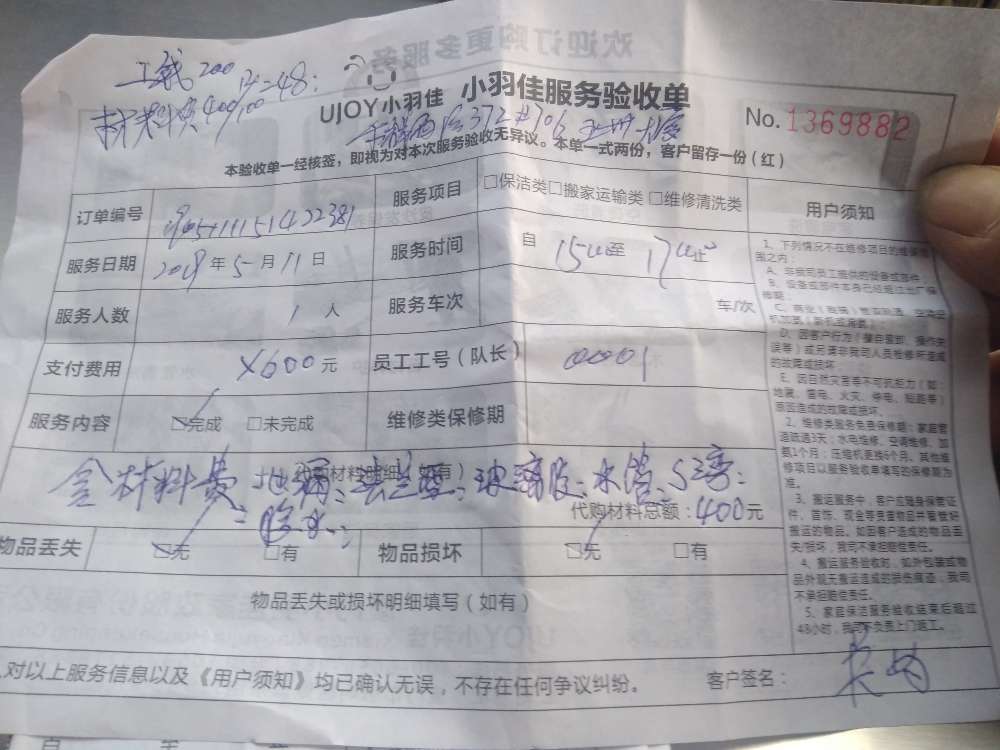 欢迎订购更多服务
工钱200
材料费400
UJOY小羽佳 小羽佳服务验收单
No.1369882
本验收单一经核签，即视为对本次服务验收无异议。本单一式两份，客户留存一份（红）
订单编号 服务项目 □保洁类□搬家运输类□维修清洗类 用户须知
服务日期 2018年5月11日 服务时间 自 15 至 17 止
服务人数 1人 服务车次 车/次
支付费用 ¥600元 员工工号（队长） 00001
服务内容 □完成 □未完成 维修类保修期
代购材料明细（如有）
含材料费 地漏 玻璃胶 水管 S弯
胶水
代购材料总额：400元
物品丢失 □无 □有 物品损坏 □无 □有
物品丢失或损坏明细填写（如有）
对以上服务信息以及《用户须知》均已确认无误，不存在任何争议纠纷。 客户签名：
1、下列情况不在维修项目的维保范
围之内：
A、非我司员工提供的设备或部件
D、因客户行为（擅自重卸、操作失
误等）或另请非我司人员检修所造成
的故障或损坏
E、因自然灾害等不可抗拒力（如：
地震、雷电、火灾、停电、短路等）
原因造成的故障或损坏
2、维修类服务免费保修期：家庭管
道疏通3天；水电维修、空调维修、加
氨1个月；压缩机更换6个月，其他维
修项目以服务验收单填写的保修期为
准。
3、搬运服务中，客户应随身保管证
件、首饰、现金等贵重物品并看管好
搬运的物品。如因客户造成的物品丢
失/损坏，我司不承担赔偿责任。
4、搬运服务验收时，如外包装或物
品外观无搬运造成的损伤痕迹，我司
不承担赔偿责任。
5、家庭保洁服务验收结束后超过
48小时，我司不负责上门返工。